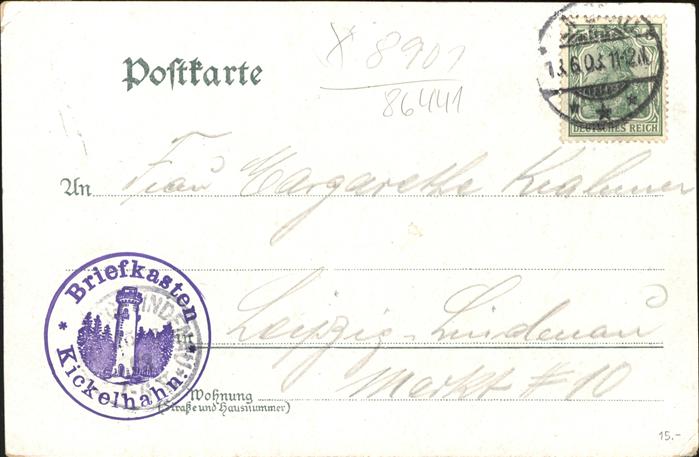 Postkarte
X 8901
86441
13.6.03. 11-12.V.
DEUTSCHES REICH
An Frau Margarethe
Leipzig-Lindenau
Markt # 10
Wohnung
(Straße und Hausnummer)
* Briefkasten *
Kickelhahn.
LINDENAU
15.-